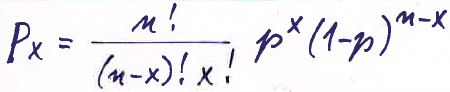 Pₓ = n! / ((n-x)! x!) pˣ (1-p)ⁿ⁻ˣ